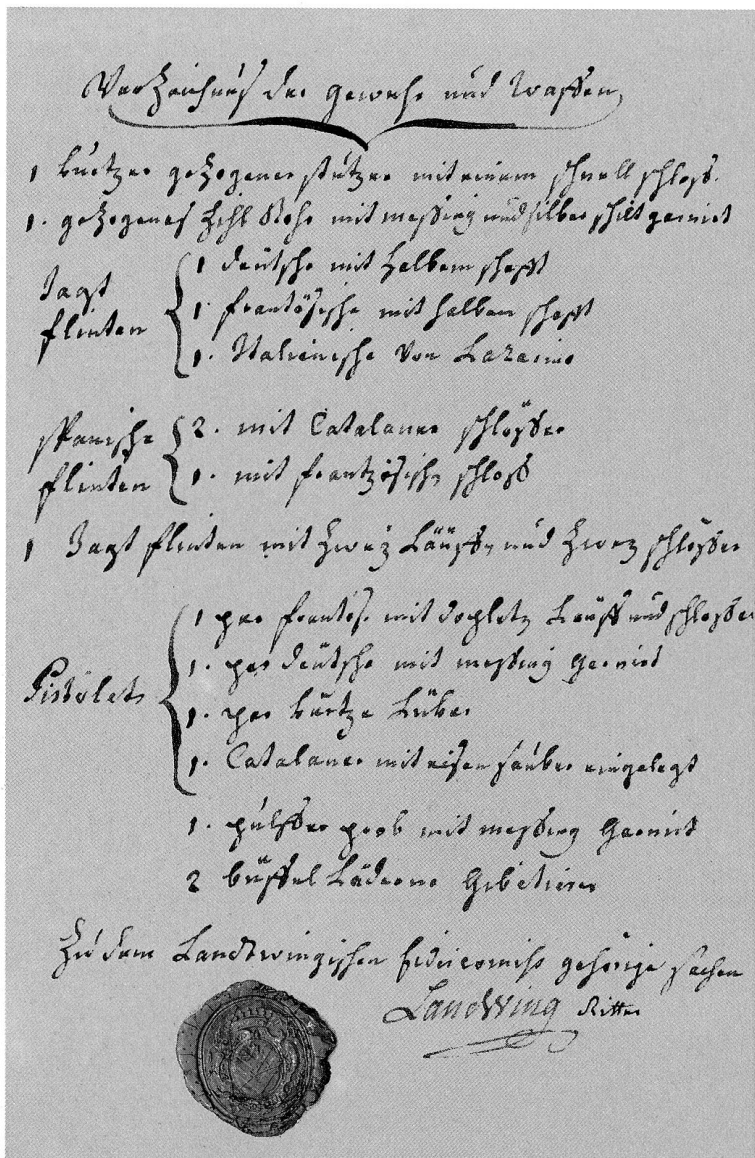 Verzeichnuß der gewehr und Waffen
1 kurtzer gezogener stutzer mit einem schnell schloss.
1. gezogenes Zihl Rohr mit messing und silber schilt garniert
Jagt flinten
1 deütsche mit halbem schafft
1. frantösische mit halbem schafft
1. Italienische von Lazarino
spanische flinten
2. mit Catalaner schlösser
1. mit frantzösisch schloss
1 Jagt flinten mit zwey Läüffen und zwey schlösser
Pistolets
1 par frantös. mit dopletn Läuff und schlosser
1. par deütsche mit messing garniert
1. par kurtze
1. Catalaner mit eisen sauber eingelegt
1. pulffer prob mit messing Garniert
2 büffel Läderne Gibetieres
Zu dem Landtwingischen fideicomiss gehörige sachen
LandtWing Ritter